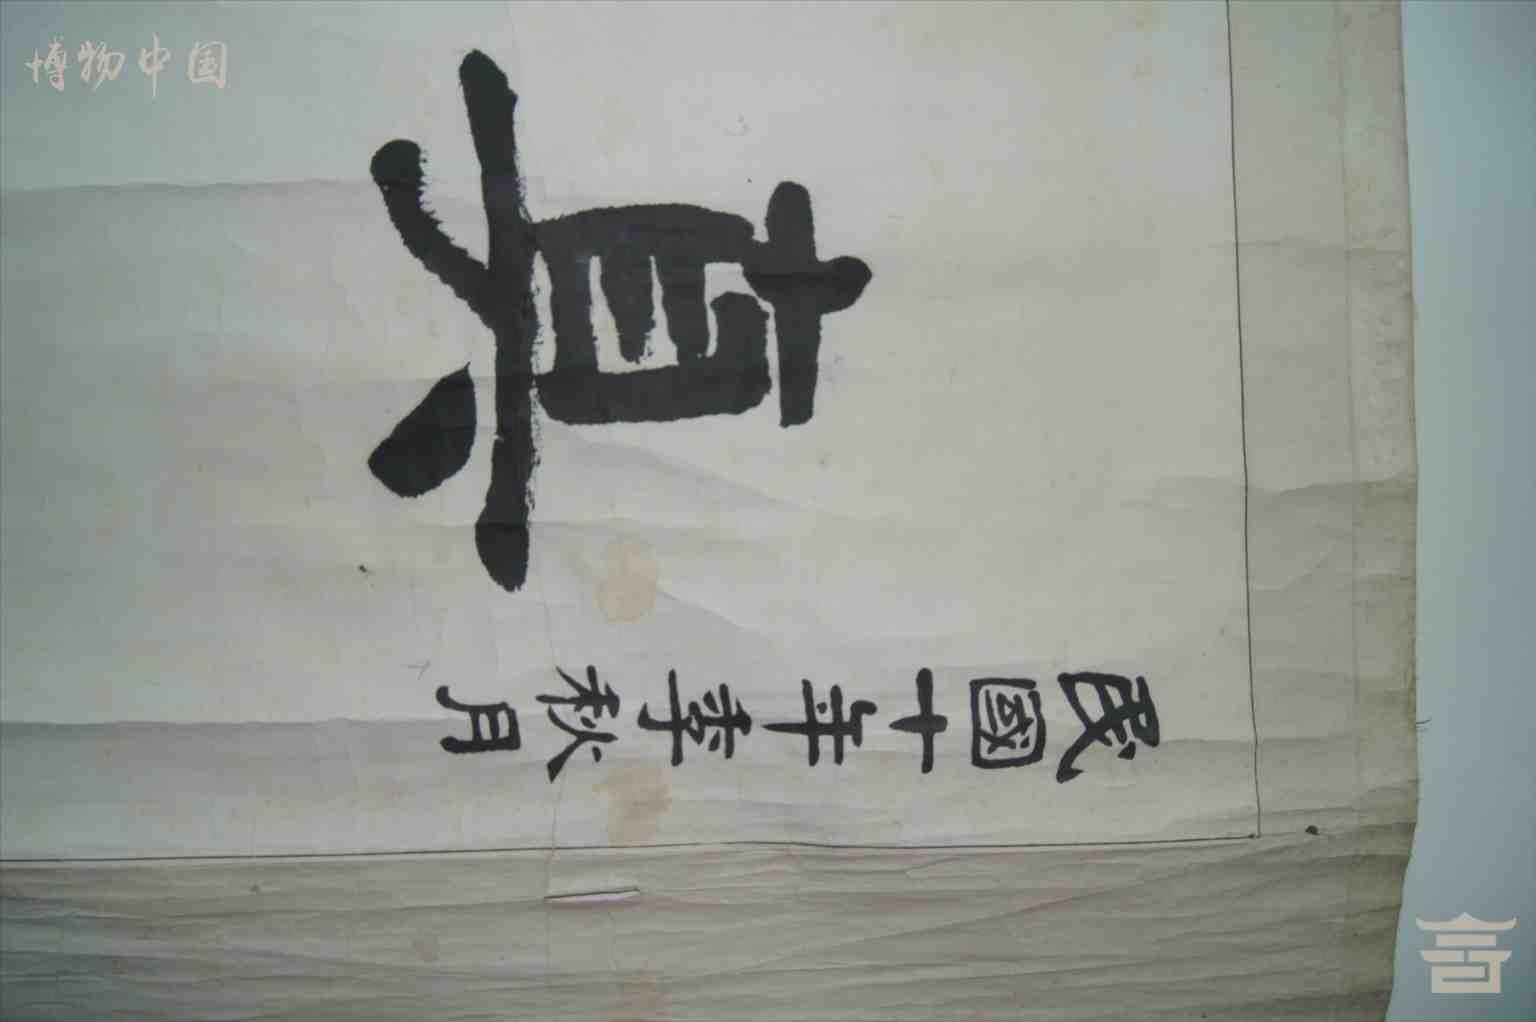 博物中国
真
民國十年季秋月